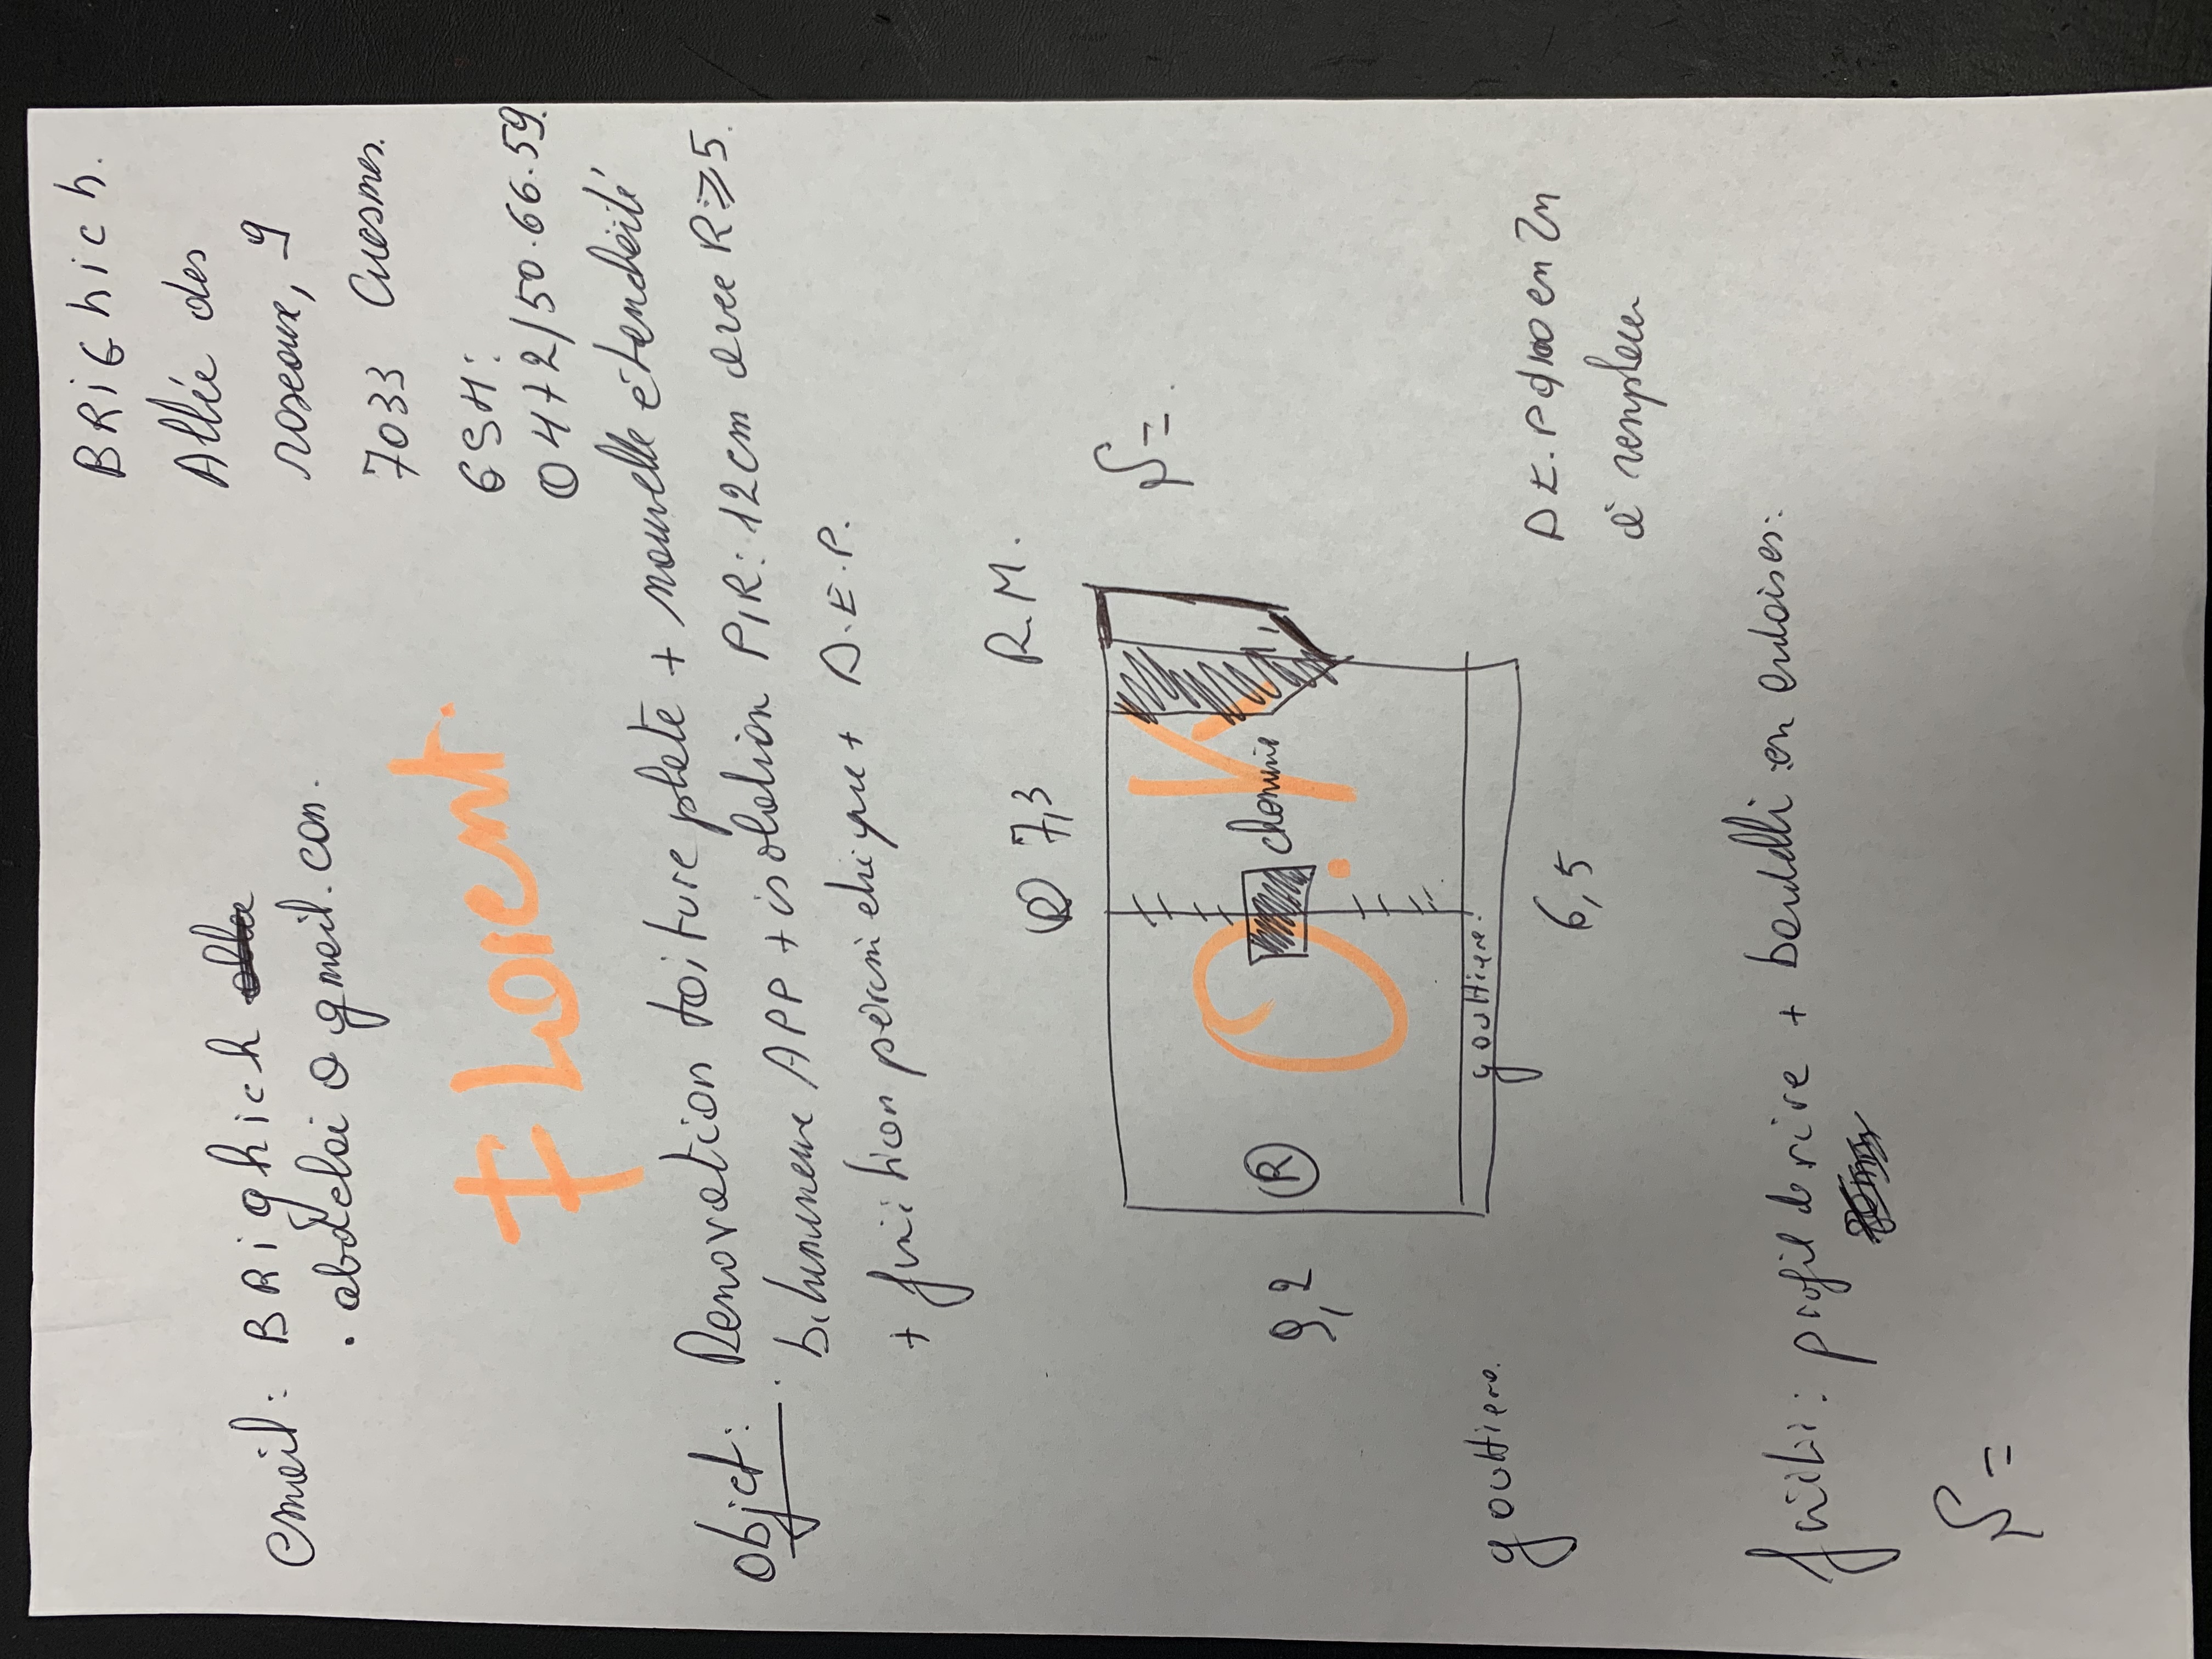 BRIGhich.
Allée des
roseaux, 9
7033 Cuesmes.
GSM:
0472/50.66.59.
email: BRighich
.abdelai@gmeil.com.
FLORENT.
Objet: Renovation toiture plate + nouvelle étanchéité
bitumeuse APP + isolation PIR: 12cm avec R≥5.
+ finition périmétrique + D.E.P.
R 7,3 R.M.
S=.
9,2
R
cheminé
O.K
gouttière.
6,5
gouttière.
D.E.P Ø100 en Zn
à remplacer
finition: profil de rive + bardelli en ardoises:
S=